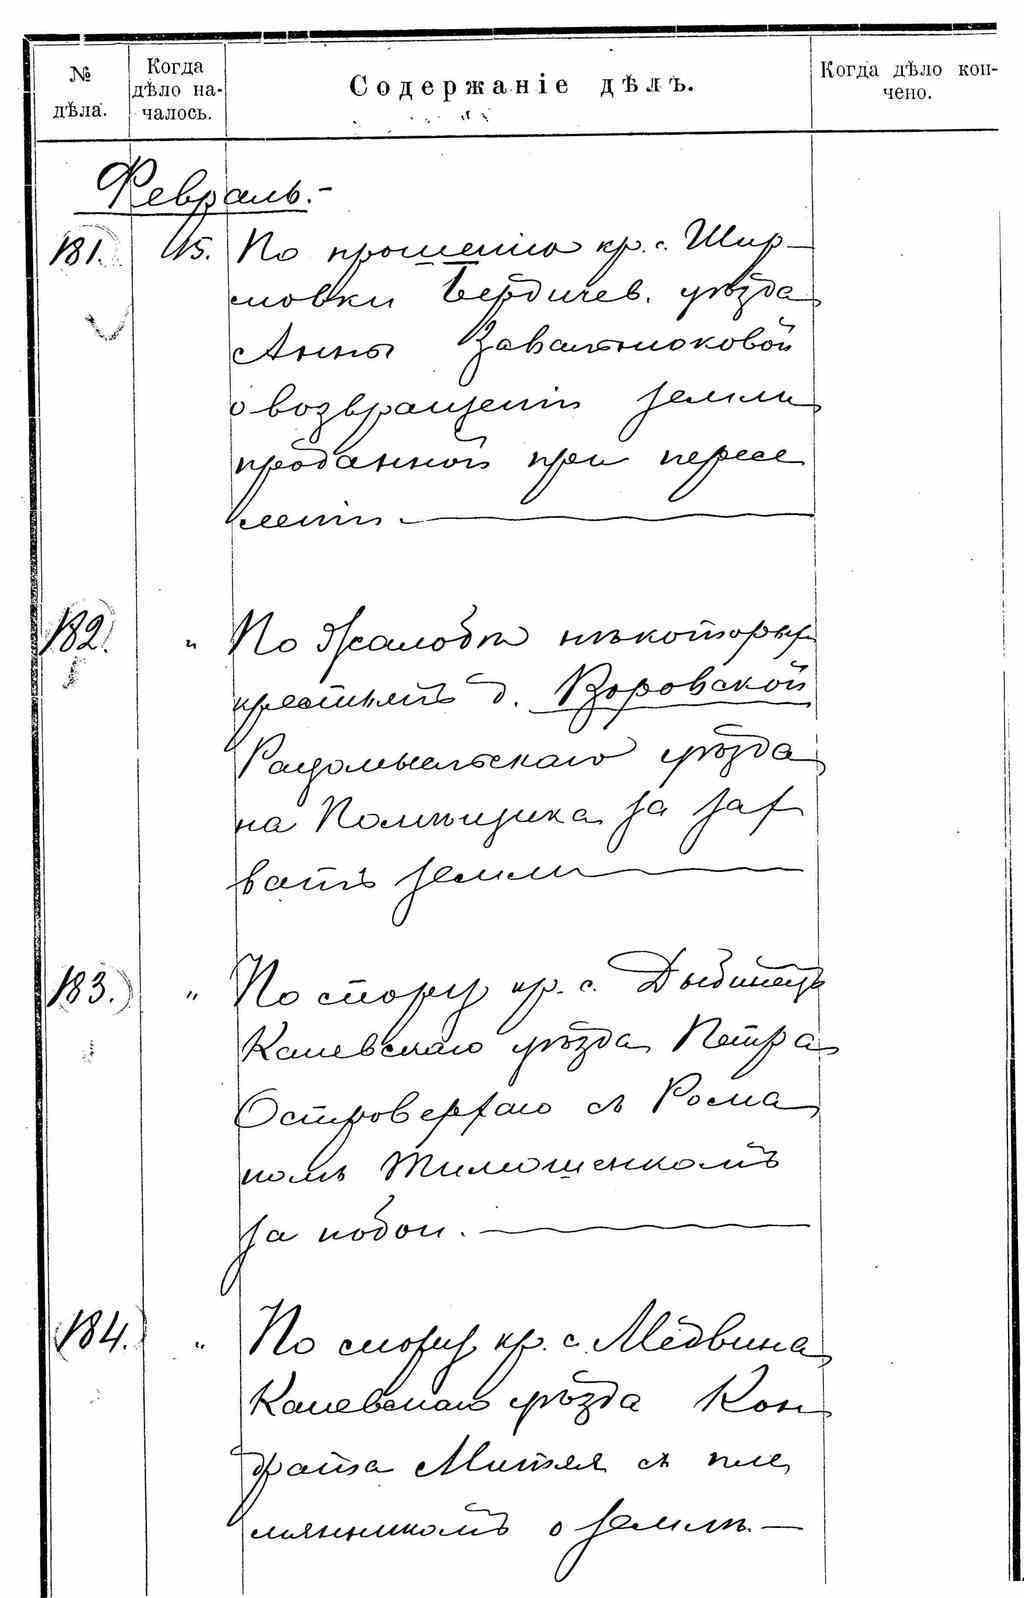 № дѣла.
Когда дѣло началось.
Содержаніе дѣлъ.
Когда дѣло кончено.
Февраль.-
181. 15. По прошенію кр. с. Шир-
мовки Бердичев. уѣзда
Анны Завальнюковой
о возвращеніи земли
проданной при пересе
леніи
182. " По жалобѣ нѣкоторых
крестьянъ д. Воровской
Радомысльскаго уѣзда
на Помѣщика за зах
ватъ земли
183. " По спору кр. с. Дыбинецъ
Каневскаго уѣзда Петра
Островерхаго съ Рома
номъ Тимошенкомъ
за побои.
184. " По спору кр. с. Медвина
Каневскаго уѣзда Кон
драта Митяя съ пле
мянникомъ о землѣ.—